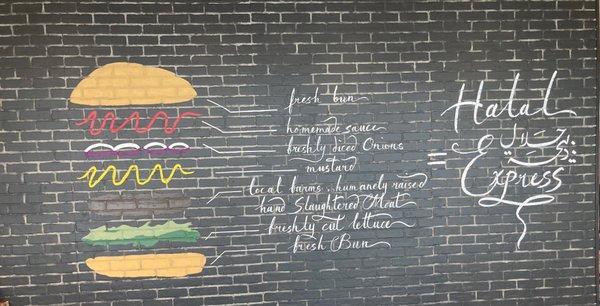 fresh bun
homemade sauce
freshly diced Onions
mustard
local farms, humanely raised
hand Slaughtered Meat
freshly cut lettuce
fresh Bun
=
Halal
حلال
Express